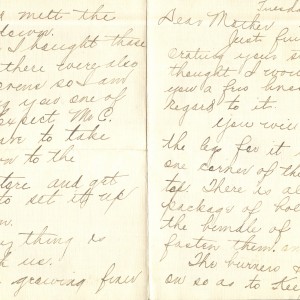 d melt the
down.
. I bought those
there were also
so I am
g you one of
expect Mr C.
ve to take
wn to the
tore and get
to set it up
n.
y thing is
h us.
growing finer
Tuesd
Dear Mother
Just fin
crating your s
thought I woul
you a few lines
regard to it.
You will
the leg for it
one corner of the
top There is al
package of bol
the bundle of
fasten them an
The burners a
on so as to kee